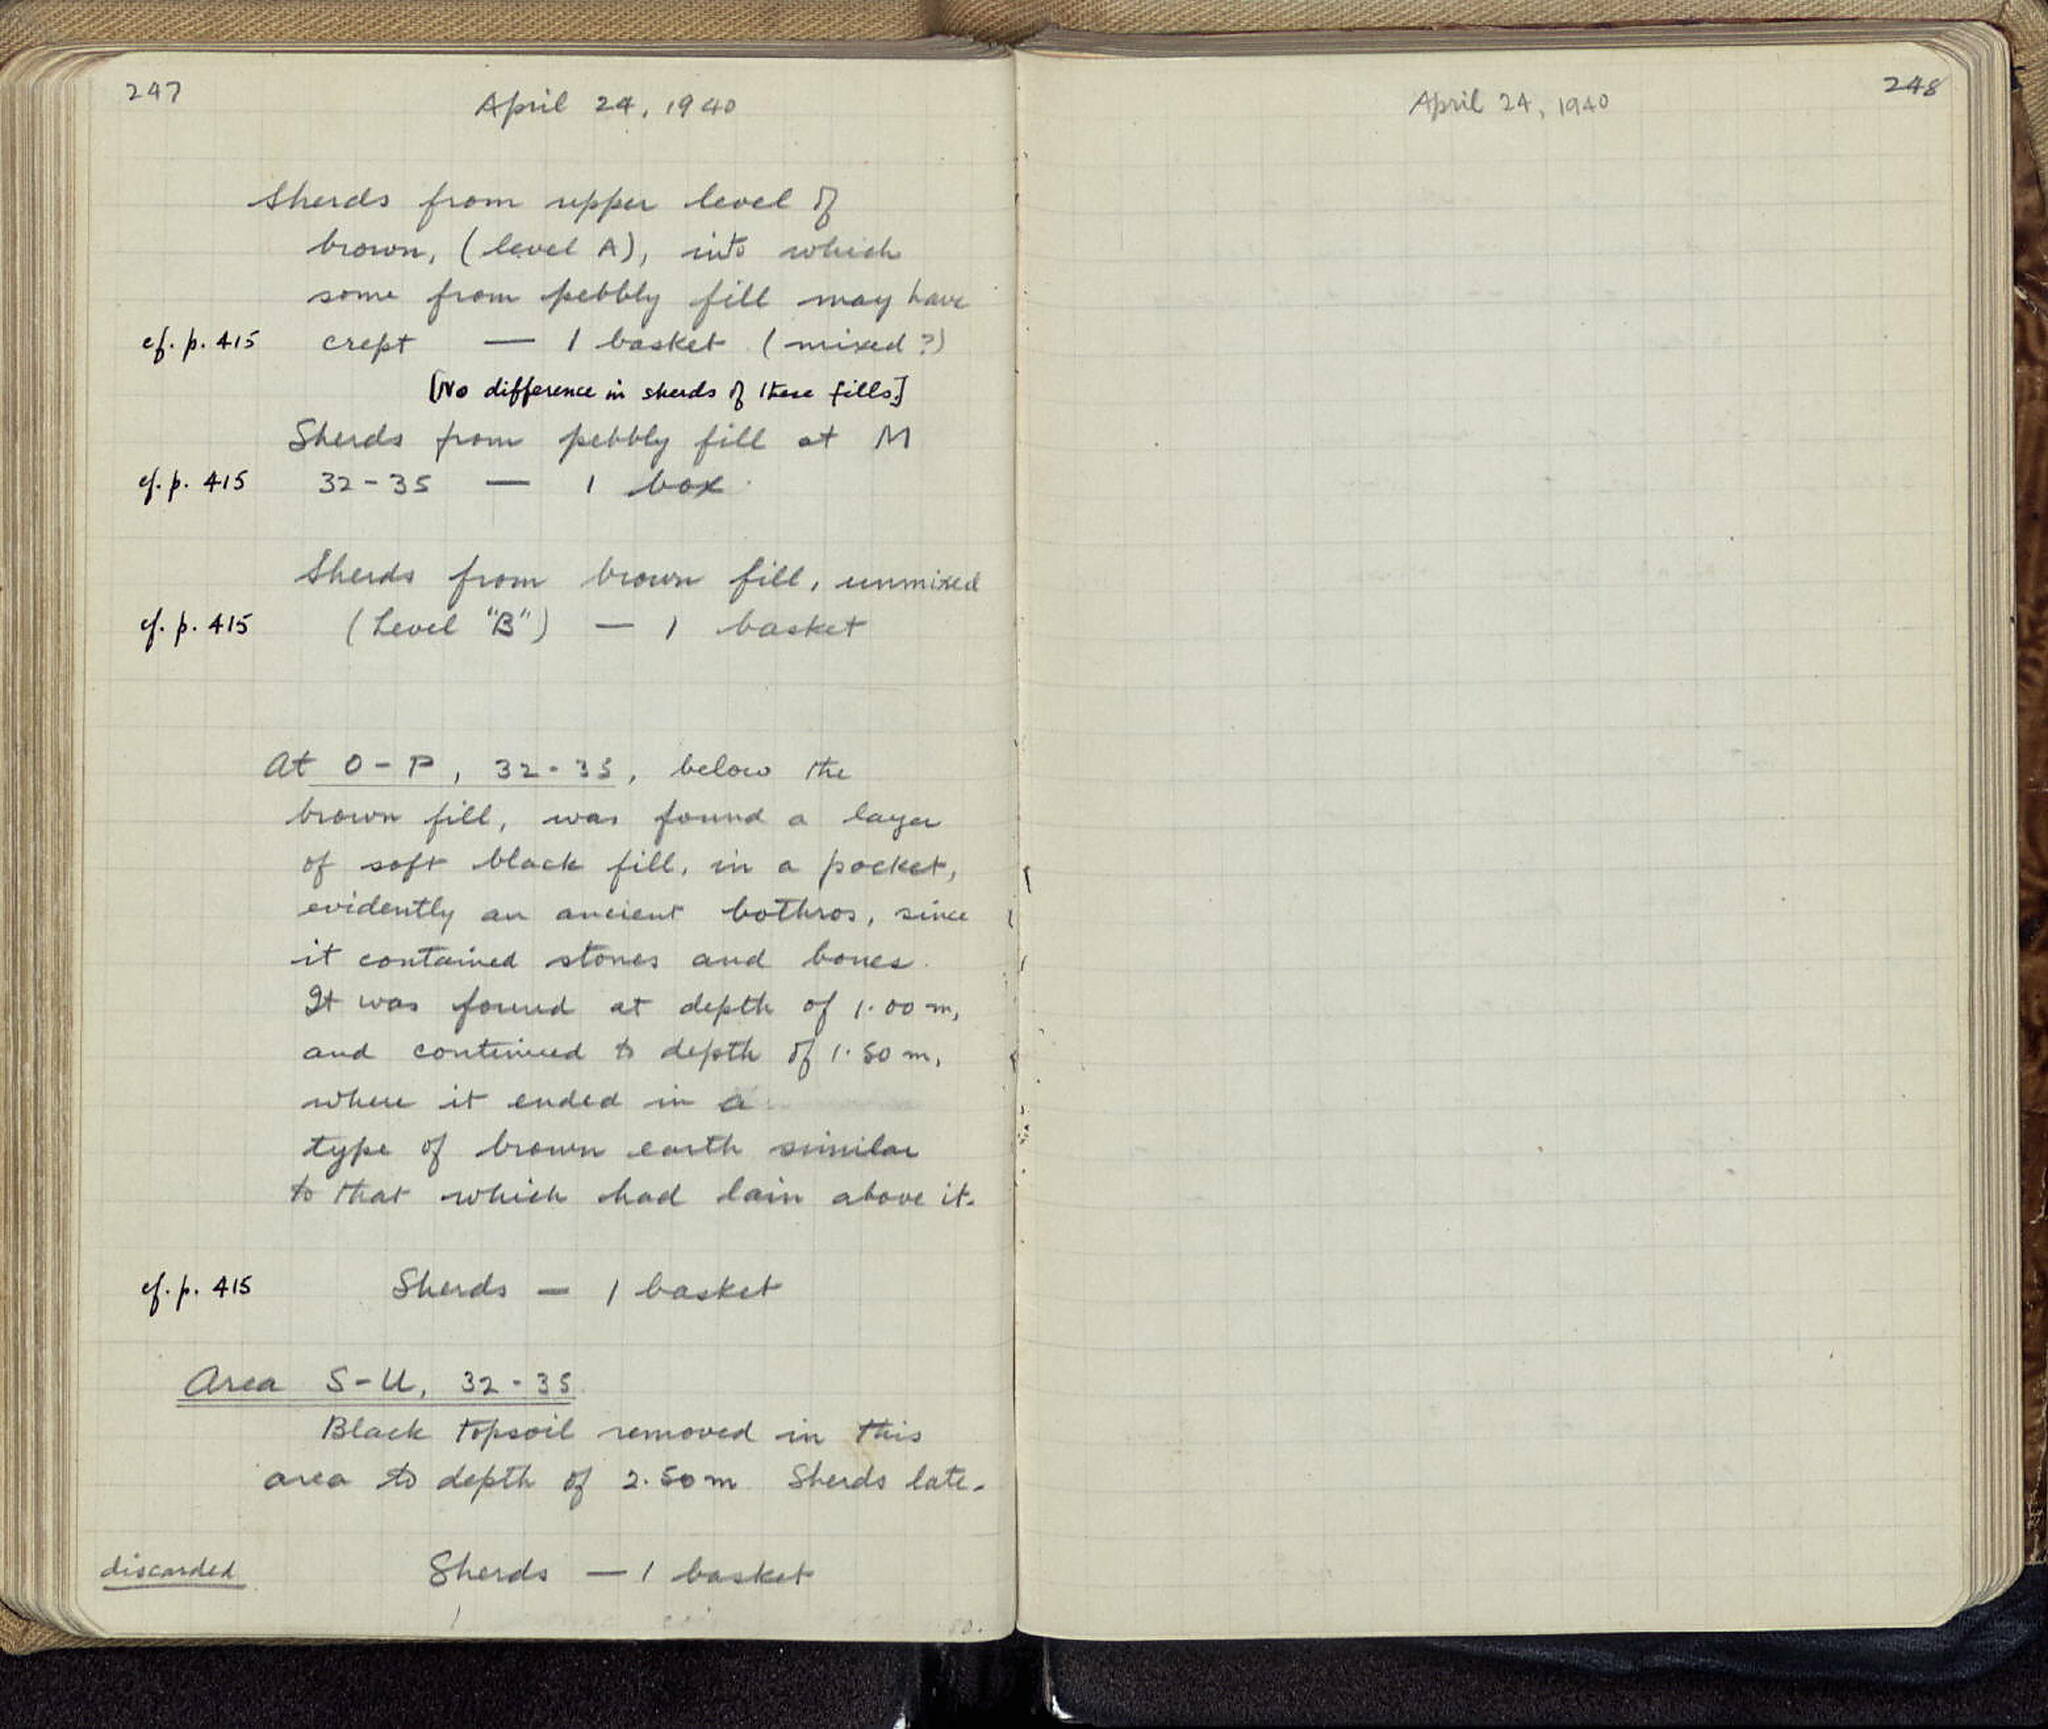 247
April 24, 1940
Sherds from upper level of
brown, (level A), into which
some from pebbly fill may have
cf. p. 415 crept — 1 basket (mixed?)
[No difference in sherds of these fills.]
Sherds from pebbly fill at M
cf. p. 415 32-35 — 1 box.
Sherds from brown fill, unmixed
cf. p. 415 (Level "B") — 1 basket
At O-P, 32-35, below the
brown fill, was found a layer
of soft black fill, in a pocket,
evidently an ancient bothros, since
it contained stones and bones.
It was found at depth of 1.00 m,
and continued to depth of 1.50 m,
where it ended in a
type of brown earth similar
to that which had lain above it.
cf. p. 415 Sherds — 1 basket
Area S-U, 32-35
Black topsoil removed in this
area to depth of 2.50 m Sherds late.
discarded Sherds — 1 basket
April 24, 1940
248